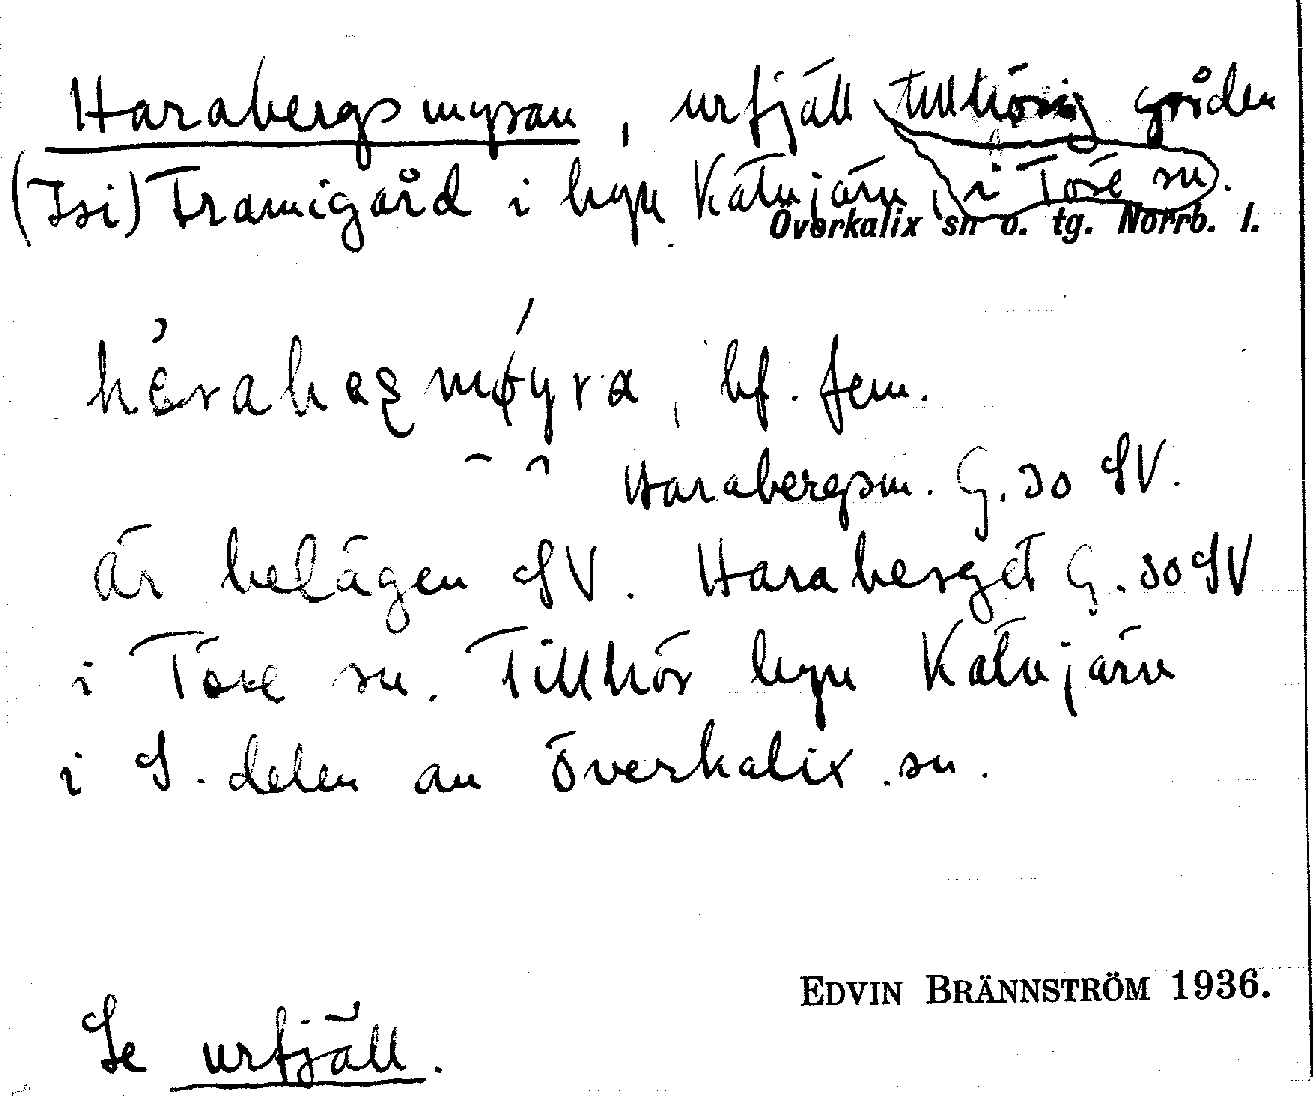 Harabergsmyran, urfjäll tillhörig gården
(Isi) Framigård i byn Kätujärv, i Töre sn.
Överkalix sn o. tg. Norrb. l.
bf. fem.
Harabergsm. G. 30 SV.
är belägen SV. Haraberget G. 30 SV
i Töre sn. Tillhör byn Kätujärv
i S. delen av Överkalix sn.
EDVIN BRÄNNSTRÖM 1936.
Se urfjäll.